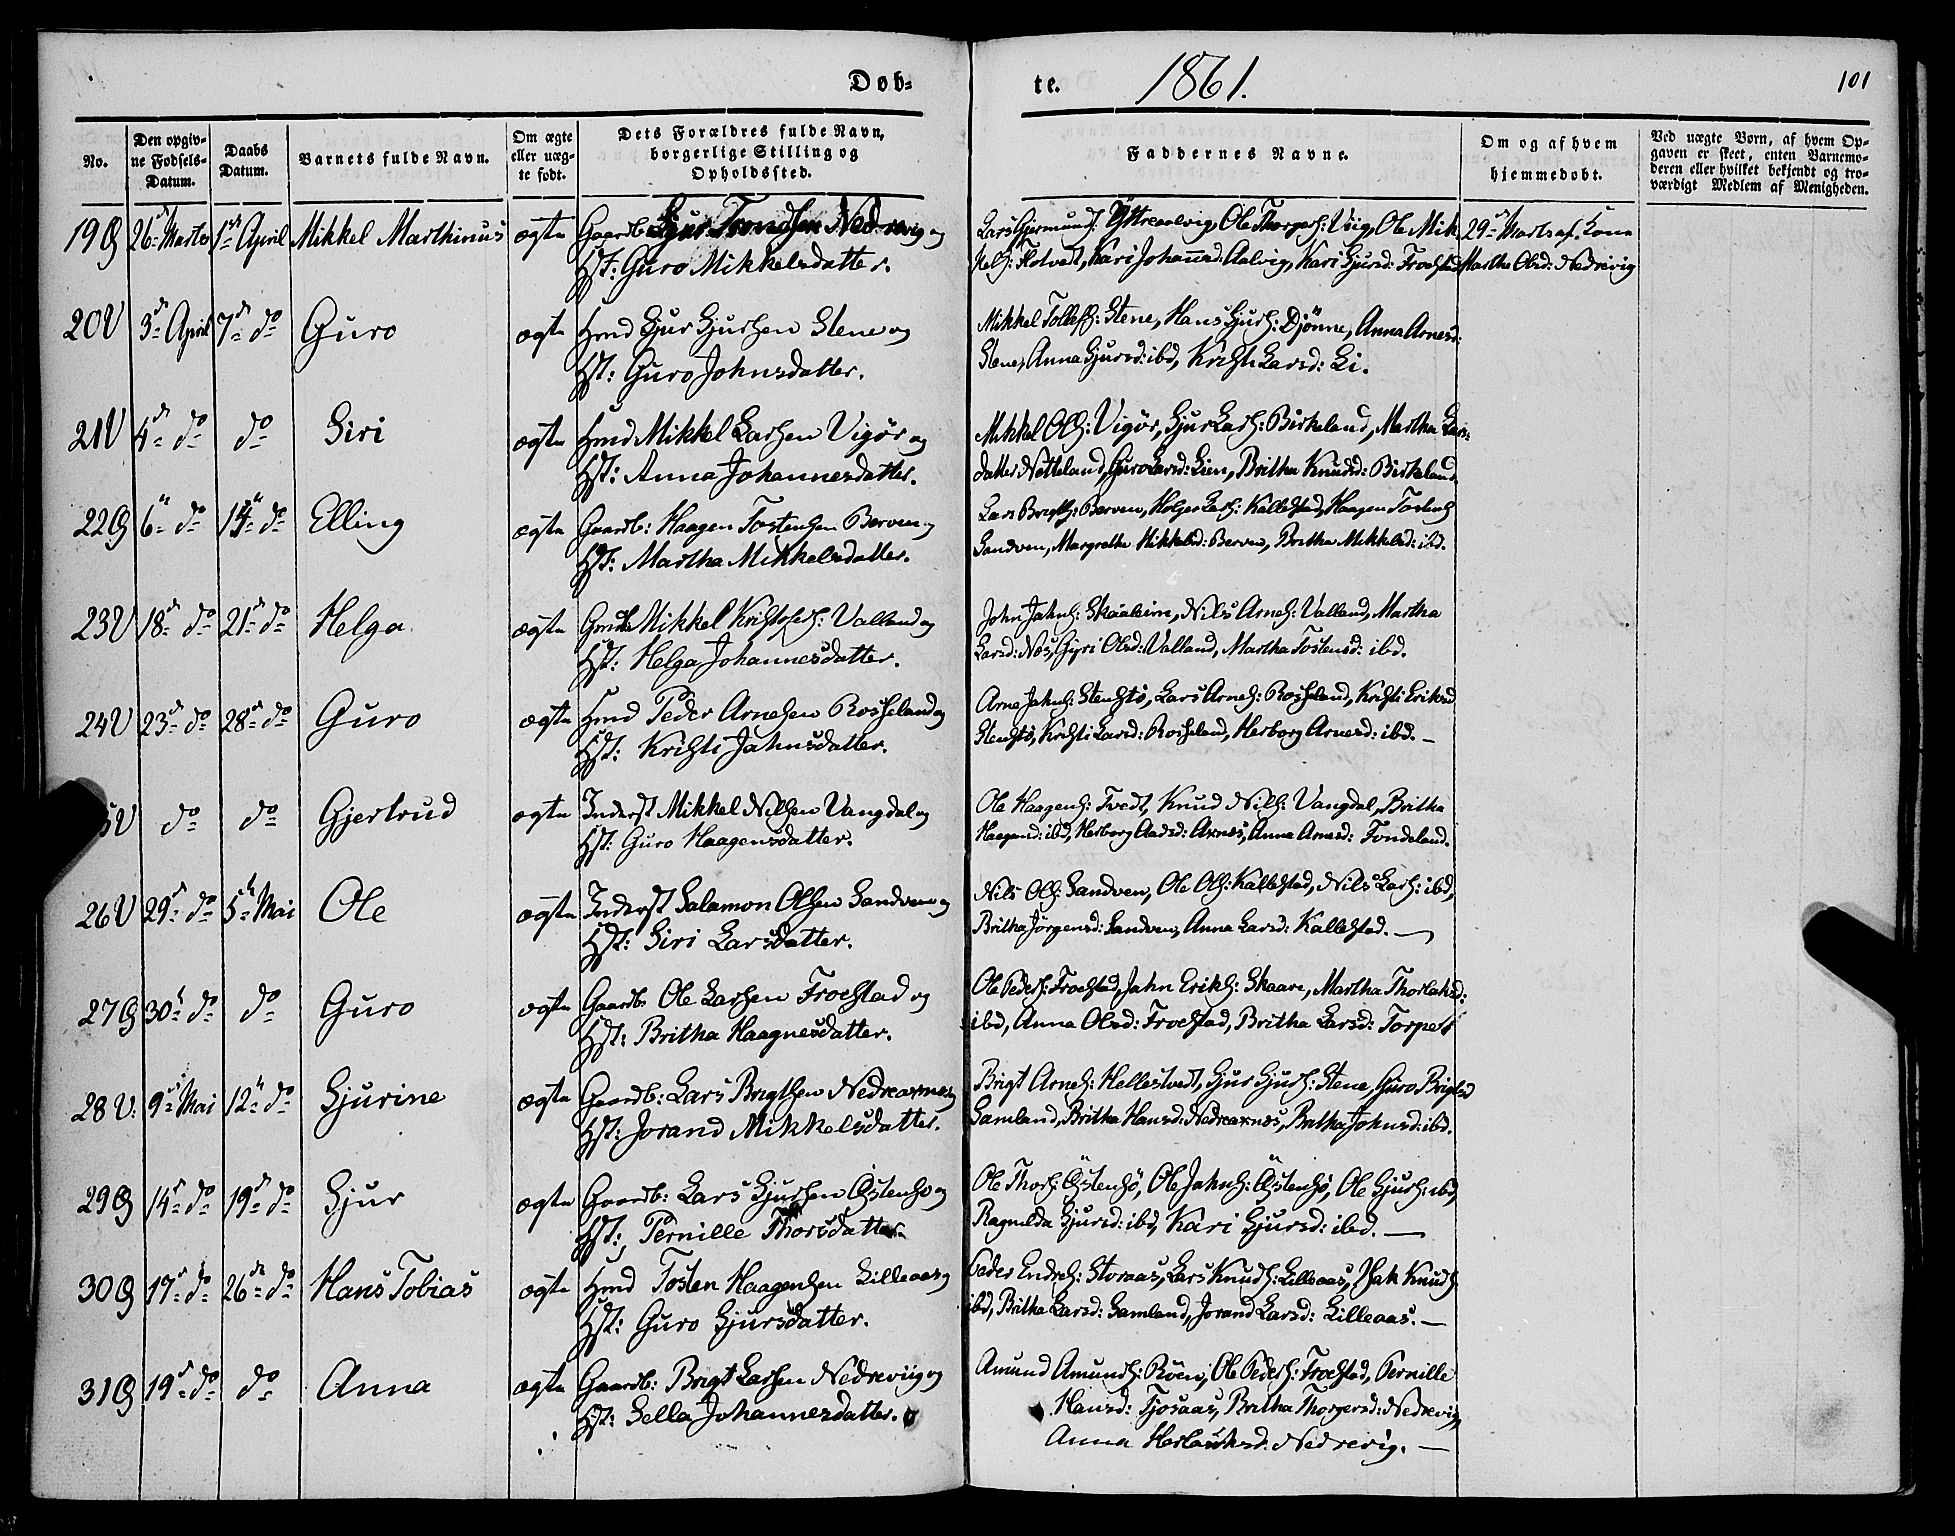 Døb-
te. 1861. 101
No. Den opgiv-ne Fødsels-Datum. Daabs Datum. Barnets fulde Navn. Om ægte eller uæg-te født. Dets Forældres fulde Navn, borgerlige Stilling og Opholdssted. Faddernes Navne. Om og af hvem hjemmedøbt. Ved uægte Børn, af hvem Op-gaven er skeet, enten Barnemo-deren eller hvilket bekjendt og tro-værdigt Medlem af Menigheden.
19 G 26de Marts 1ste April Mikkel Marthinus ægte Gaardb: Sjur Trondsen Nedrevig og
Hst: Guro Mikkelsdatter.
Lars Gjermunds: Ytreaalvig, Ole Thorgers: Viig, Ole Mik
kels: Flotvedt, Kari Johannsd: Aalvig, Kari Sjursd: Froestad
29de Marts af Kone
Martha Olsd: Nedrevig
20 V 3de April 7de do Guro ægte Hmd Sjur Sjursen Stene og
Hst: Guro Johnsdatter.
Mikkel Tollefs: Stene, Hans Sjurs: Djønne, Anna Arnesd:
Stene, Anna Sjursd: ibd, Kristi Larsd: Li.
21 V 4de do do Siri ægte Hmd Mikkel Larsen Vigør og
Hst: Anna Johannesdatter.
Mikkel Ols: Vigør, Sjur Lars: Birkeland, Martha Lars-
datter Netteland, Guro Larsd: Lien, Britha Knudsd: Birkeland
22 G 6te do 14te do Elling ægte Gaardb: Haagen Tostensen Berven og
Hst: Martha Mikkelsdatter.
Lars Brigts: Berven, Holger Lars: Kallestad, Haagen Tostens
Sandven, Margretha Mikkelsd: Berven, Britha Mikkelsd: ibd.
23 V 18de do 21de do Helga ægte Mikkel Kristofers: Valland og
Hst: Helga Johannesdatter.
John Jahns: Skaaheim, Nils Arnes: Valland, Martha
Larsd: Næs, Gyri Olsd: Valland, Martha Tostensd: ibd.
24 V 23de do 28de do Guro ægte Hmd Peder Arnesen Rosseland og
Hst: Kristi Jahnsdatter.
Arne Jahns: Stenstø, Lars Arnes: Rosseland, Kristi Eriksd
Stenstø, Kristi Larsd: Rosseland, Herborg Arnesd: ibd. —
5 V do do Gjertrud ægte Inderst Mikkel Nilsen Vangdal og
Hst: Guro Haagensdatter.
Ole Haagens: Tvedt, Knud Nils: Vangdal, Britha
Haagensd: ibd, Herborg Aadsd: Axnes, Anna Arnesd: Fondeland.
26 V 29de do 5te Mai Ole ægte Inderst Salamon Olsen Sandven og
Hst: Siri Larsdatter.
Nils Ols: Sandven, Ole Ols: Kallestad, Nils Lars: ibd,
Britha Jørgensd: Sandven, Anna Larsd: Kallestad. —
27 G 30te do do Guro ægte Gaardb Ole Larsen Froestad og
Hst: Britha Haagnesdatter.
Ole Peders: Froestad, Jahn Eriks: Skaare, Martha Thorlaksd:
ibd, Anna Olsd: Froestad, Britha Larsd: Torpets
28 V: 9de Mai 12te do Sjurine ægte Gaardb: Lars Brigtsen Nedreaxnes og
Hst: Jorand Mikkelsdatter.
Brigt Arnes: Hellestvedt, Sjur Sjurs: Stene, Guro Brigtsd
Samland, Britha Hansd: Nedreaxnes, Britha Johnsd: ibd.
29 G 14de do 19de do Sjur ægte Gaardb: Lars Sjursen Østensø og
Hst: Pernille Thorsdatter.
Ole Thors: Østensø, Ole Jahns: Østensø, Ole Sjurs: ibd,
Ragnilda Sjursd: ibd, Kari Sjursd: ibd. —
30 G 17de do 26de do Hans Tobias ægte Hmd Tosten Haagensen Lilleaas og
Hst: Guro Sjursdatter.
Peder Endres: Storaas, Lars Knuds: Lilleaas, Isak Knuds
ibd, Britha Larsd: Samland, Jorand Larsd: Lilleaas. —
31 G 19de do do Anna ægte Gaardb: Brigt Larsen Nedreviig og
Hst: Sella Johannesdatter.
Amund Amunds: Røen, Ole Peders: Froestad, Pernille
Hansd: Tjosaas, Britha Thorgersd: Nedrevig,
Anna Herlauksd: Nedrevig. —